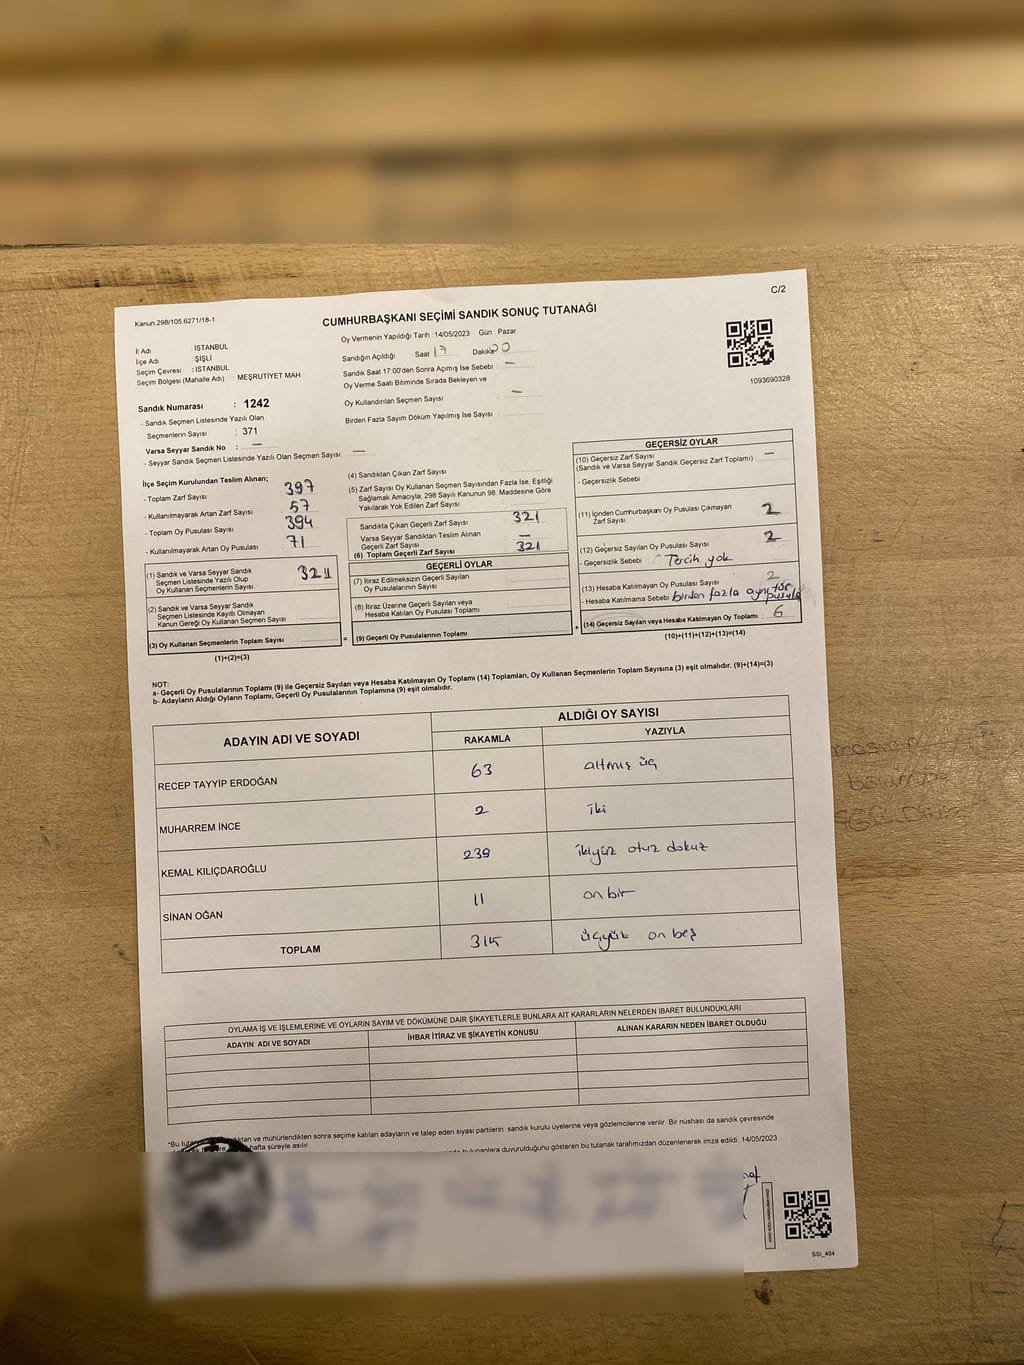 C/2
Kanun,298/105,6271/18-1
CUMHURBAŞKANI SEÇİMİ SANDIK SONUÇ TUTANAĞI
Oy Vermenin Yapıldığı Tarih : 14/05/2023 Gün : Pazar
İl Adı : İSTANBUL
İlçe Adı : ŞİŞLİ
Seçim Çevresi : İSTANBUL
Seçim Bölgesi (Mahalle Adı) : MEŞRUTİYET MAH.
Sandık Numarası : 1242
- Sandık Seçmen Listesinde Yazılı Olan
Seçmenlerin Sayısı : 371
Varsa Seyyar Sandık No : —
- Seyyar Sandık Seçmen Listesinde Yazılı Olan Seçmen Sayısı : —
Sandığın Açıldığı Saat 17 Dakika 00
Sandık Saat 17:00'den Sonra Açımış İse Sebebi : —
Oy Verme Saati Bitiminde Sırada Bekleyen ve
Oy Kullandırılan Seçmen Sayısı : —
Birden Fazla Sayım Döküm Yapılmış İse Sayısı :
1093690328
İlçe Seçim Kurulundan Teslim Alınan;
- Toplam Zarf Sayısı : 397
- Kullanılmayarak Artan Zarf Sayısı : 57
- Toplam Oy Pusulası Sayısı : 394
- Kullanılmayarak Artan Oy Pusulası : 71
(1) Sandık ve Varsa Seyyar Sandık
Seçmen Listesinde Yazılı Olup
Oy Kullanan Seçmenlerin Sayısı : 321
(2) Sandık ve Varsa Seyyar Sandık
Seçmen Listesinde Kayıtlı Olmayan
Kanun Gereği Oy Kullanan Seçmen Sayısı :
(3) Oy Kullanan Seçmenlerin Toplam Sayısı :
(1)+(2)=(3)
(4) Sandıktan Çıkan Zarf Sayısı :
(5) Zarf Sayısı Oy Kullanan Seçmen Sayısından Fazla İse, Eşitliği
Sağlamak Amacıyla, 298 Sayılı Kanunun 98. Maddesine Göre
Yakılarak Yok Edilen Zarf Sayısı :
Sandıkta Çıkan Geçerli Zarf Sayısı : 321
Varsa Seyyar Sandıktan Teslim Alınan
Geçerli Zarf Sayısı : —
(6) Toplam Geçerli Zarf Sayısı : 321
GEÇERLİ OYLAR
(7) İtiraz Edilmeksizin Geçerli Sayılan
Oy Pusulalarının Sayısı :
(8) İtiraz Üzerine Geçerli Sayılan veya
Hesaba Katılan Oy Pusulası Toplamı :
= (9) Geçerli Oy Pusulalarının Toplamı : +
GEÇERSİZ OYLAR
(10) Geçersiz Zarf Sayısı : —
(Sandık ve Varsa Seyyar Sandık Geçersiz Zarf Toplamı)
- Geçersizlik Sebebi :
(11) İçinden Cumhurbaşkanı Oy Pusulası Çıkmayan
Zarf Sayısı : 2
(12) Geçersiz Sayılan Oy Pusulası Sayısı : 2
- Geçersizlik Sebebi : Tercih yok
(13) Hesaba Katılmayan Oy Pusulası Sayısı : 2
- Hesaba Katılmama Sebebi : birden fazla aynı tür
pusula
(14) Geçersiz Sayılan veya Hesaba Katılmayan Oy Toplamı : 6
(10)+(11)+(12)+(13)=(14)
NOT:
a- Geçerli Oy Pusulalarının Toplamı (9) ile Geçersiz Sayılan veya Hesaba Katılmayan Oy Toplamı (14) Toplamları, Oy Kullanan Seçmenlerin Toplam Sayısına (3) eşit olmalıdır. (9)+(14)=(3)
b- Adayların Aldığı Oyların Toplamı, Geçerli Oy Pusulalarının Toplamına (9) eşit olmalıdır.
ADAYIN ADI VE SOYADI
ALDIĞI OY SAYISI
RAKAMLA YAZIYLA
RECEP TAYYİP ERDOĞAN 63 altmış üç
MUHARREM İNCE 2 iki
KEMAL KILIÇDAROĞLU 239 ikiyüz otuz dokuz
SİNAN OĞAN 11 on bir
TOPLAM 315 üçyüz on beş
OYLAMA İŞ VE İŞLEMLERİNE VE OYLARIN SAYIM VE DÖKÜMÜNE DAİR ŞİKAYETLERLE BUNLARA AİT KARARLARIN NELERDEN İBARET BULUNDUKLARI
ADAYIN ADI VE SOYADI İHBAR İTİRAZ VE ŞİKAYETİN KONUSU ALINAN KARARIN NEDEN İBARET OLDUĞU
ve mühürlendikten sonra seçime katılan adayların ve talep eden siyasi partilerin sandık kurulu üyelerine veya gözlemcilerine verilir. Bir nüshası da sandık çevresinde
hafta süreyle asılır.
duyurulduğunu gösteren bu tutanak tarafımızdan düzenlenerek imza edildi. 14/05/2023
SSI_404